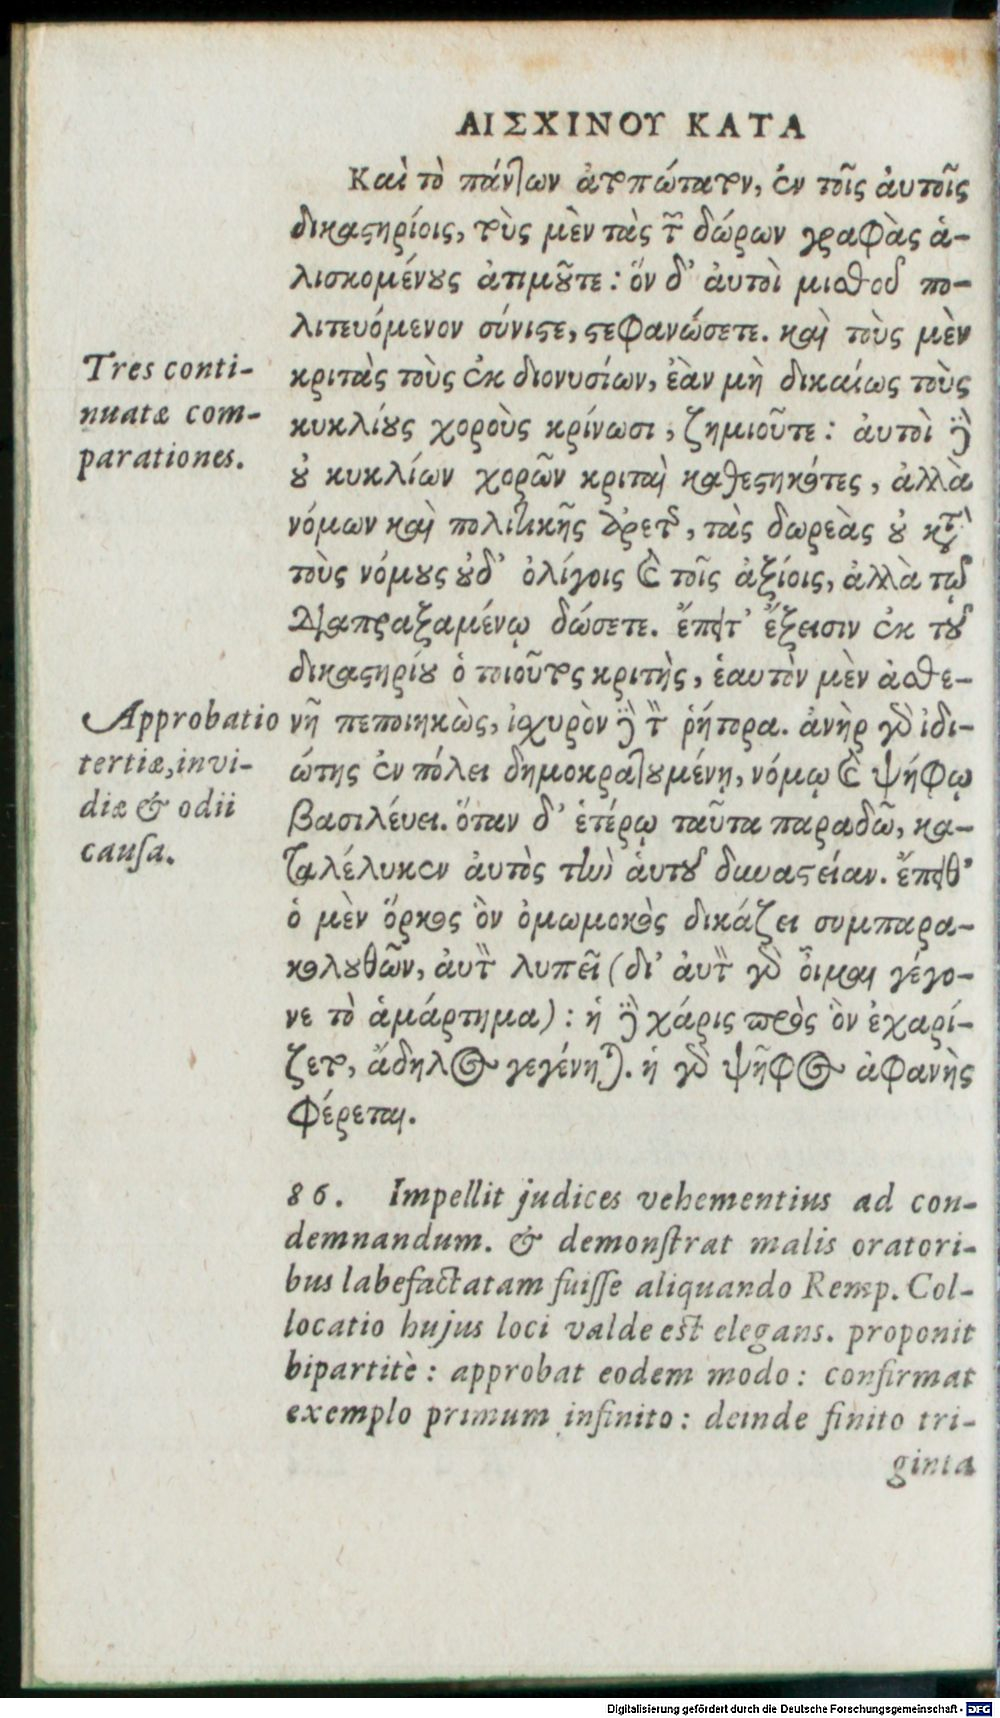 ΑΙΣΧΙΝΟΥ ΚΑΤΑ
Καὶ τὸ πάντων ἀτοπώτατον, ἐν τοῖς ἀυτοῖς
δικαστηρίοις, τοὺς μὲν τὰς τῶν δώρων γραφὰς ἁ-
λισκομένους ἀτιμοῦτε: ὅν δ' ἀυτοὶ μισθοῦ πο-
λιτευόμενον σύνιστε, στεφανώσετε. καὶ τοὺς μὲν
κριτὰς τοὺς ἐκ διονυσίων, ἐὰν μὴ δικαίως τοὺς
κυκλίους χοροὺς κρίνωσι, ζημιοῦτε: ἀυτοὶ δὲ
οὐ κυκλίων χορῶν κριταὶ καθεστηκότες, ἀλλὰ
νόμων καὶ πολιτικῆς ἀρετῆς, τὰς δωρεὰς οὐ κατὰ
τοὺς νόμους οὐδ' ὀλίγοις καὶ τοῖς ἀξίοις, ἀλλὰ τῷ
διαπραξαμένῳ δώσετε. ἔπειτ' ἔξεισιν ἐκ τοῦ
δικαστηρίου ὁ τοιοῦτος κριτὴς, ἑαυτὸν μὲν ἀσθε-
νῆ πεποιηκὼς, ἰσχυρὸν δὲ τὸν ῥήτορα. ἀνὴρ γὰρ ἰδι-
ώτης ἐν πόλει δημοκρατουμένῃ, νόμῳ καὶ ψήφῳ
βασιλέυει. ὅταν δ' ἑτέρῳ ταῦτα παραδῶ, κα-
ταλέλυκεν ἀυτὸς τὴν ἁυτοῦ δυναστείαν. ἔπειθ'
ὁ μὲν ὅρκος ὃν ὀμωμοκὼς δικάζει συμπαρα-
κολουθῶν, ἀυτὸν λυπεῖ (δι' ἀυτὸν γὰρ ὄιμαι γέγο-
νε τὸ ἁμάρτημα): ἡ δὲ χάρις πρὸς ὃν ἐχαρί-
ζετο, ἄδηλος γεγένηται. ἡ γὰρ ψῆφος ἀφανὴς
φέρεται.
Tres conti-
nuatæ com-
parationes.
Approbatio
tertiæ, invi-
diæ & odii
causa.
86. Impellit judices vehementius ad con-
demnandum. & demonstrat malis oratori-
bus labefactatam fuisse aliquando Remp. Col-
locatio hujus loci valde est elegans. proponit
bipartitè: approbat eodem modo: confirmat
exemplo primum infinito: deinde finito tri-
ginta
Digitalisierung gefördert durch die Deutsche Forschungsgemeinschaft - DFG